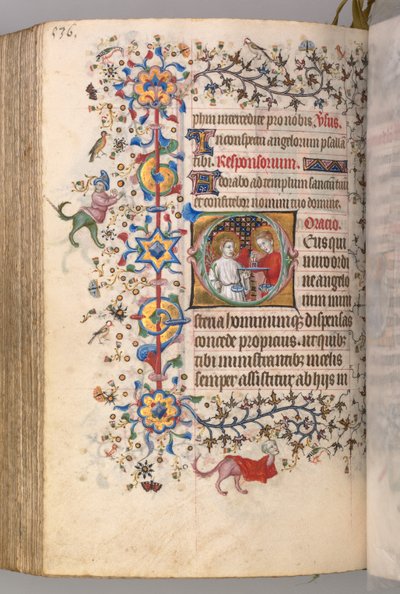 536.
phin intercedite pro nobis. Vſus.
In conspectu angelorum psalla
tibi. Responsorium.
Adorabo ad templum sanctū tuū
et confitebor nomini tuo domine.
Oratio.
Deus qui
miro ordi
ne angelo
rum mini
steria hominumq; dispensas
concede propicius. ut quib;
tibi ministrantib; in celis
semper assistitur ab hys in